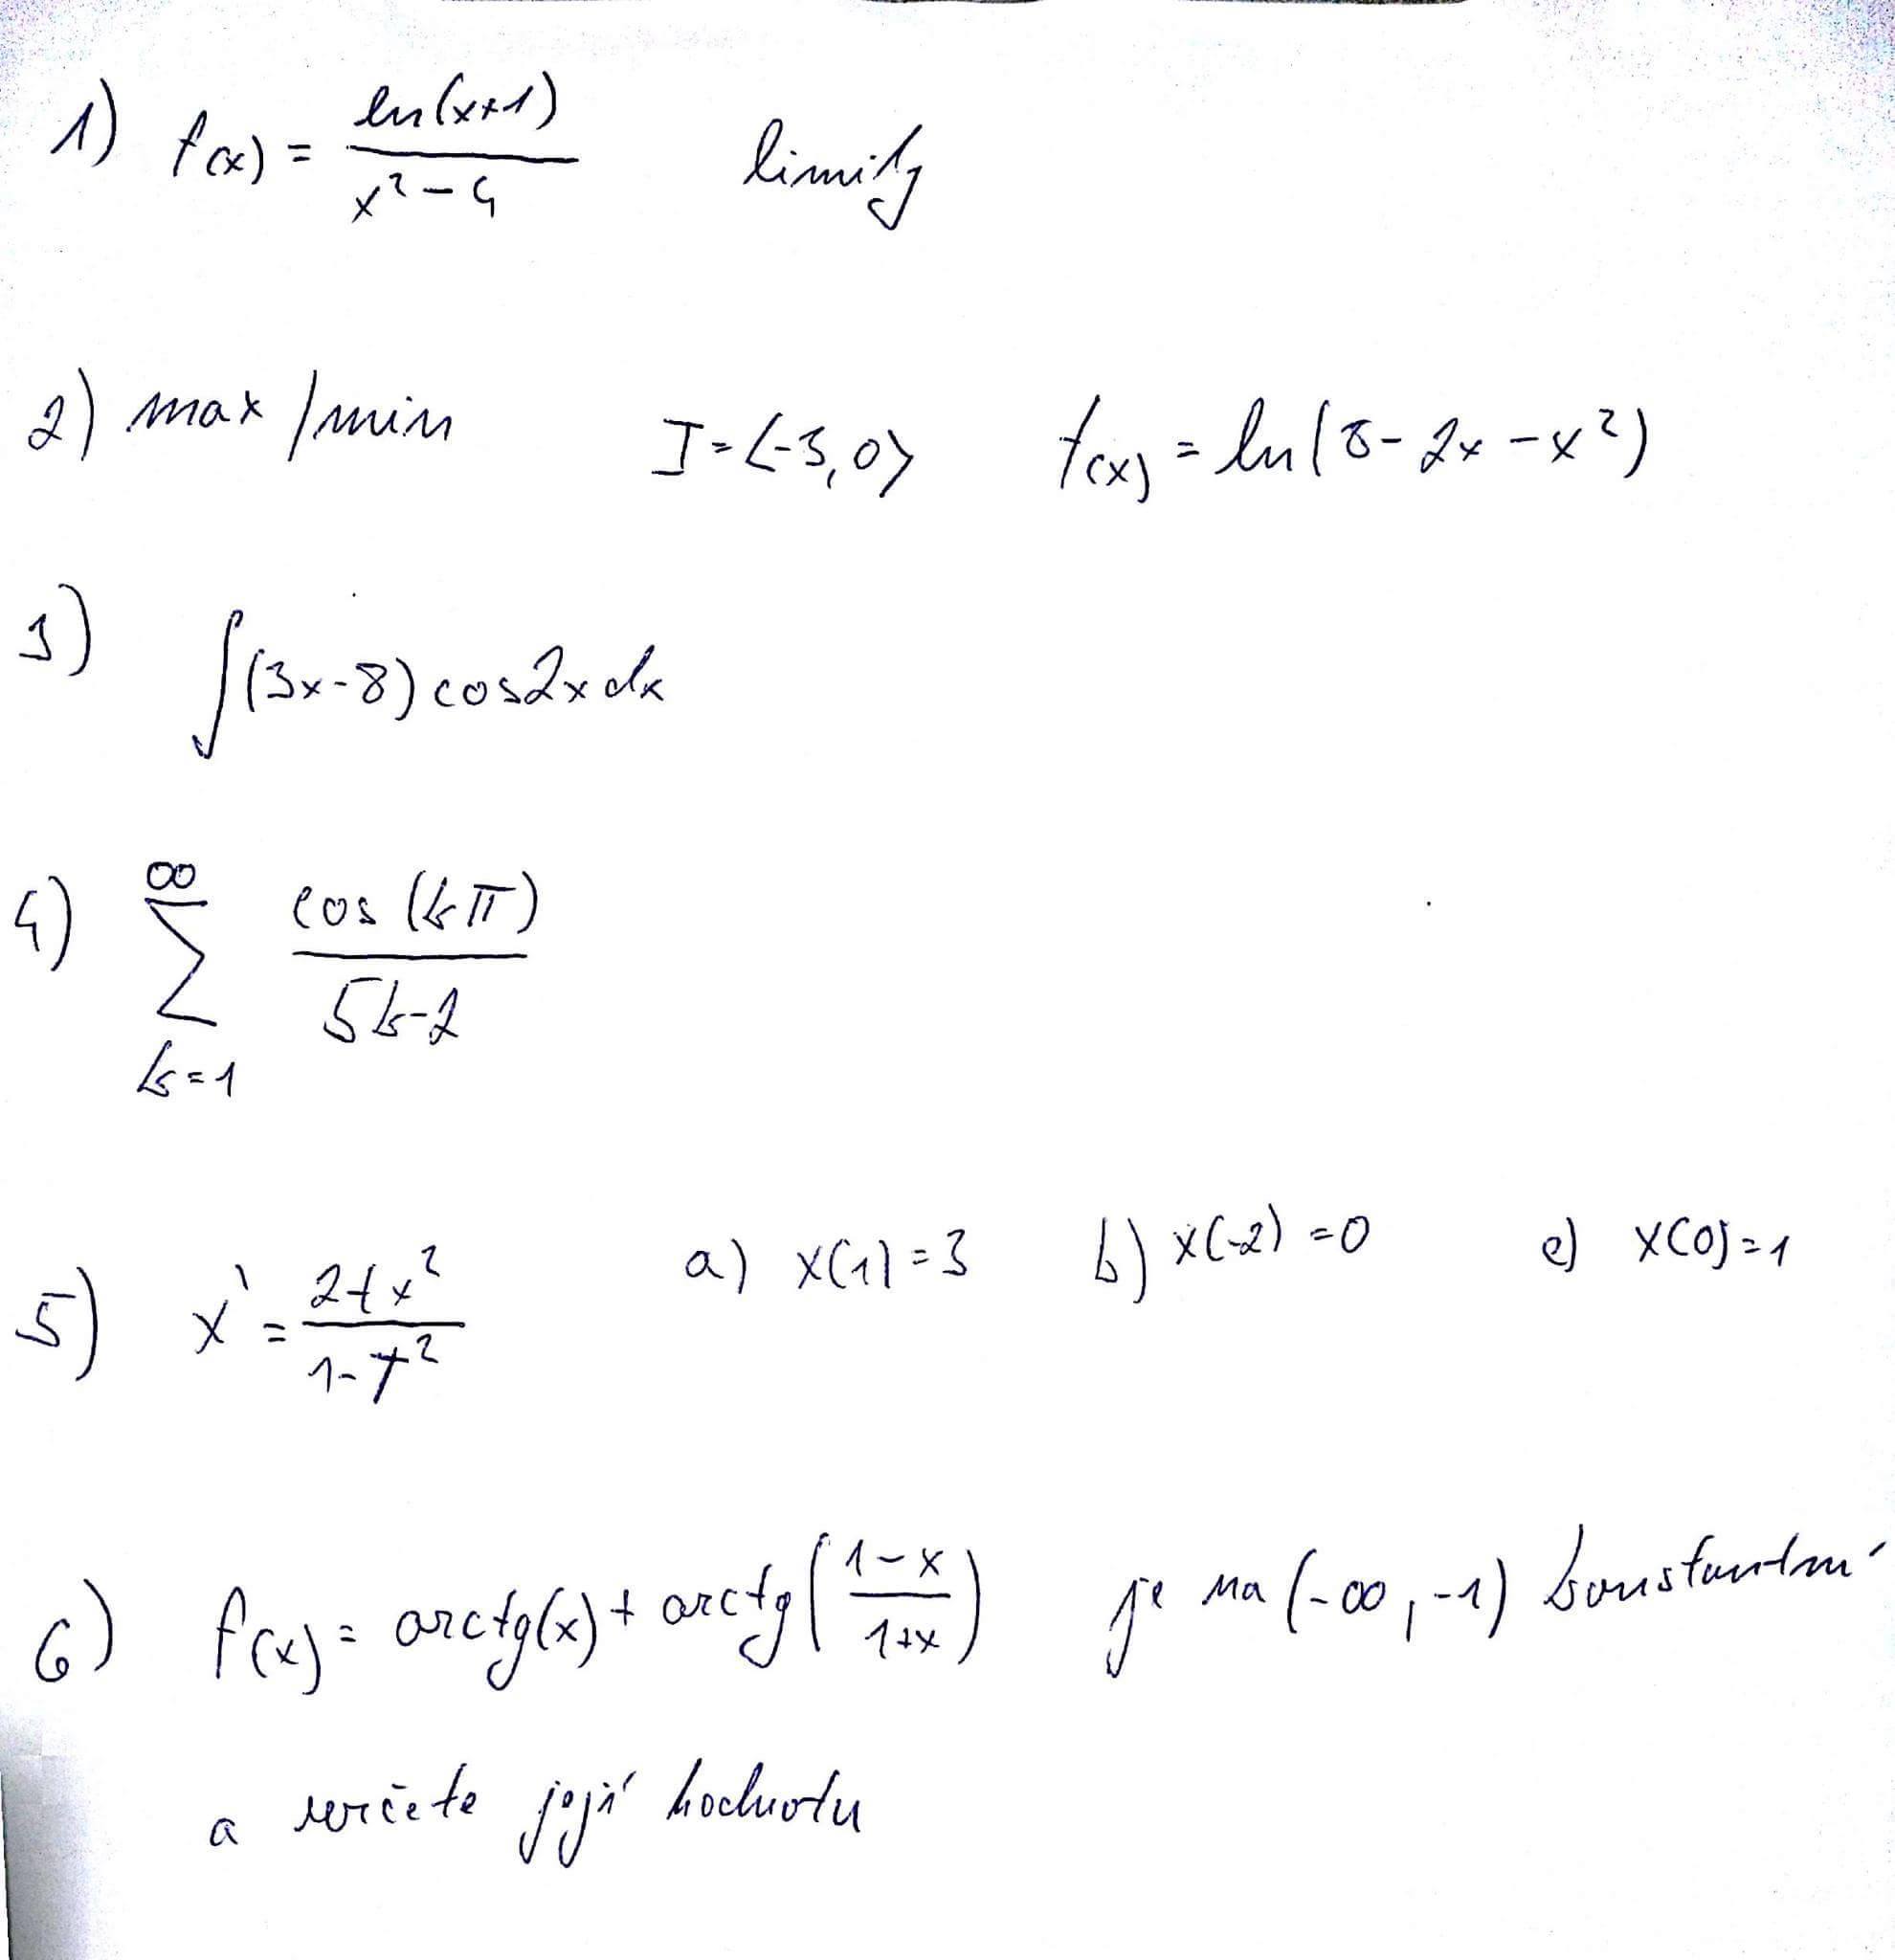 1) f(x) = ln(x+1) / (x² - 4) limity
2) max / min I = <-3, 0> f(x) = ln(8 - 2x - x²)
3) ∫(3x-8) cos2x dx
4) ∞ ∑ k=1 cos(kπ) / (5k-2)
5) x' = 2tx² / (1-t²) a) x(1) = 3 b) x(-2) = 0 c) x(0) = 1
6) f(x) = arctg(x) + arctg((1-x) / (1+x)) je na (-∞, -1) konstantní
a určete její hodnotu